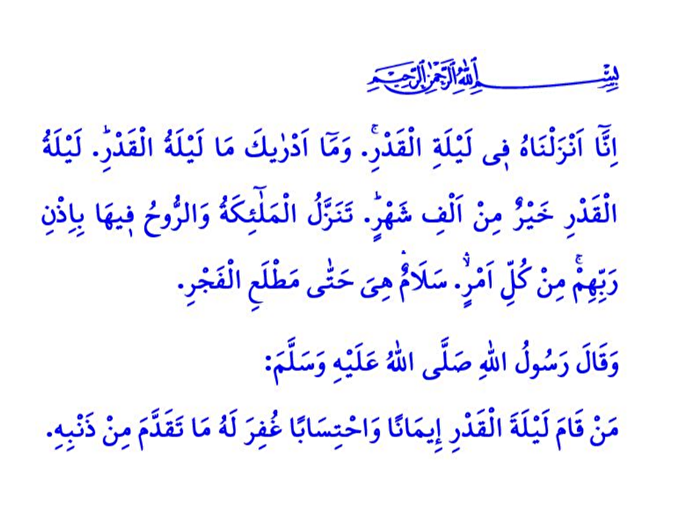 بِسْــــــــمِ اللهِ الرَّحْمٰنِ الرَّحِيمِ
اِنَّٓا اَنْزَلْنَاهُ ف۪ى لَيْلَةِ الْقَدْرِۚ. وَمَٓا اَدْرٰيكَ مَا لَيْلَةُ الْقَدْرِؕ. لَيْلَةُ
الْقَدْرِ خَيْرٌ مِنْ اَلْفِ شَهْرٍؕ. تَنَزَّلُ الْمَلٰٓئِكَةُ وَالرُّوحُ ف۪يهَا بِاِذْنِ
رَبِّهِمْۚ مِنْ كُلِّ اَمْرٍۙۛ. سَلَامٌ۠ هِىَ حَتّٰى مَطْلَعِ الْفَجْرِ.
وَقَالَ رَسُولُ اللهِ صَلَّى اللهُ عَلَيْهِ وَسَلَّمَ:
مَنْ قَامَ لَيْلَةَ الْقَدْرِ إِيمَانًا وَاحْتِسَابًا غُفِرَ لَهُ مَا تَقَدَّمَ مِنْ ذَنْبِهِ.